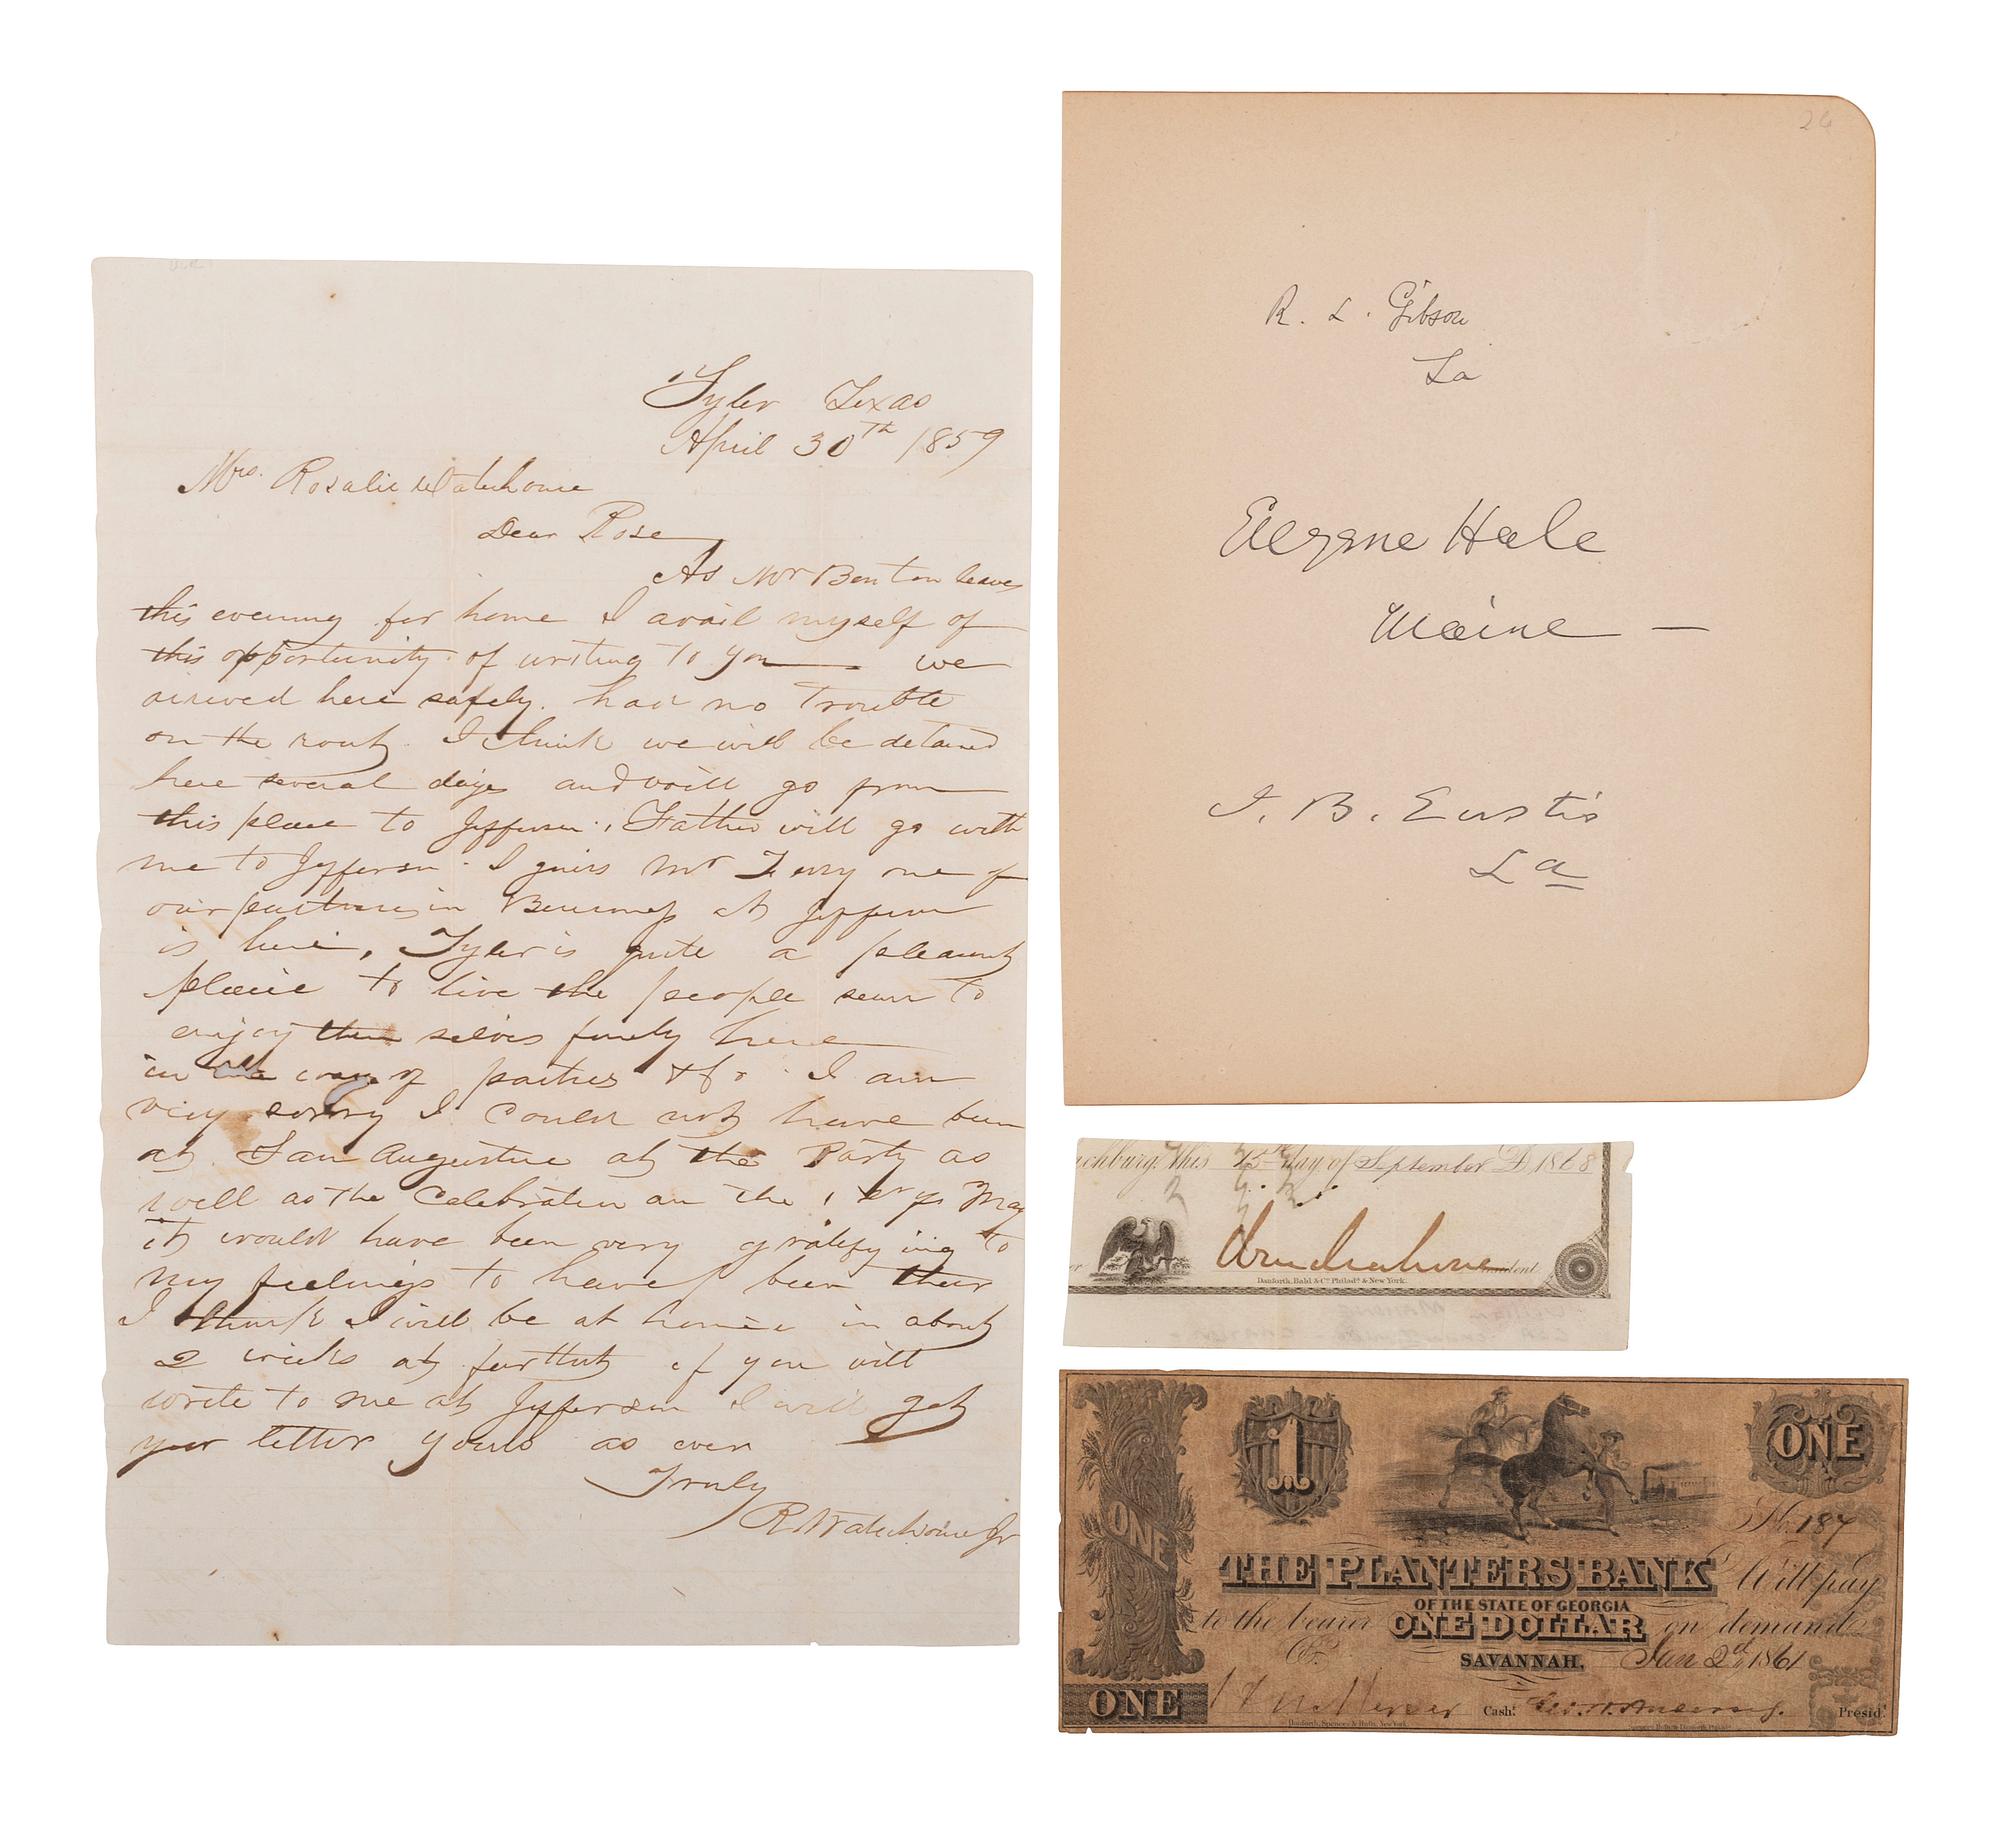 Tyler Texas
April 30th 1859
Mrs. Rosalie Waterhouse
Dear Rose
As Mr Benton leaves
this evening for home I avail myself of
this opportunity of writing to you we
arived here safely. had no trouble
on the . I think we will be detained
here several days and will go from
this place to Jefferson. Father will go with
me to Jefferson. I Mr one of
our in at Jefferson
is here, Tyler is quite a pleasant
place to live the people seem to
enjoy them selves finely here
in the way of parties &c. I am
very sorry I could not have been
at San Augustine at the Party as
well as the Celebration on the 1st of May
it would have been very gratifying to
my feelings to have been their
I think I will be at home in about
2 weeks at furthest if you will
write to me at Jefferson I will get
your letter yours as ever
Truly
R Waterhouse Jr
26
R. L. Gibson
La
Eugene Hale
Maine —
J. B. Eustis
La
chburg, this 15th day of September A.D. 1868
Wm Mahone
ident
Danforth, Bald & Co. Philada. & New York.
1
ONE
ONE
No. 187
THE PLANTERS BANK Will pay
OF THE STATE OF GEORGIA
to the bearer ONE DOLLAR on demand
SAVANNAH, Jan 2d 1861
ONE
Cash. Presid.
Danforth, Spencer & Hufty, New York.